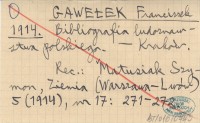 GAWEŁEK Franciszek
1914. Bibliografia ludoznaw-
stwa polskiego. — Kraków.
Rec.: Matusiak Szy-
mon, Ziemia (Warszawa-Lwów)
5 (1914), nr 17: 271-272